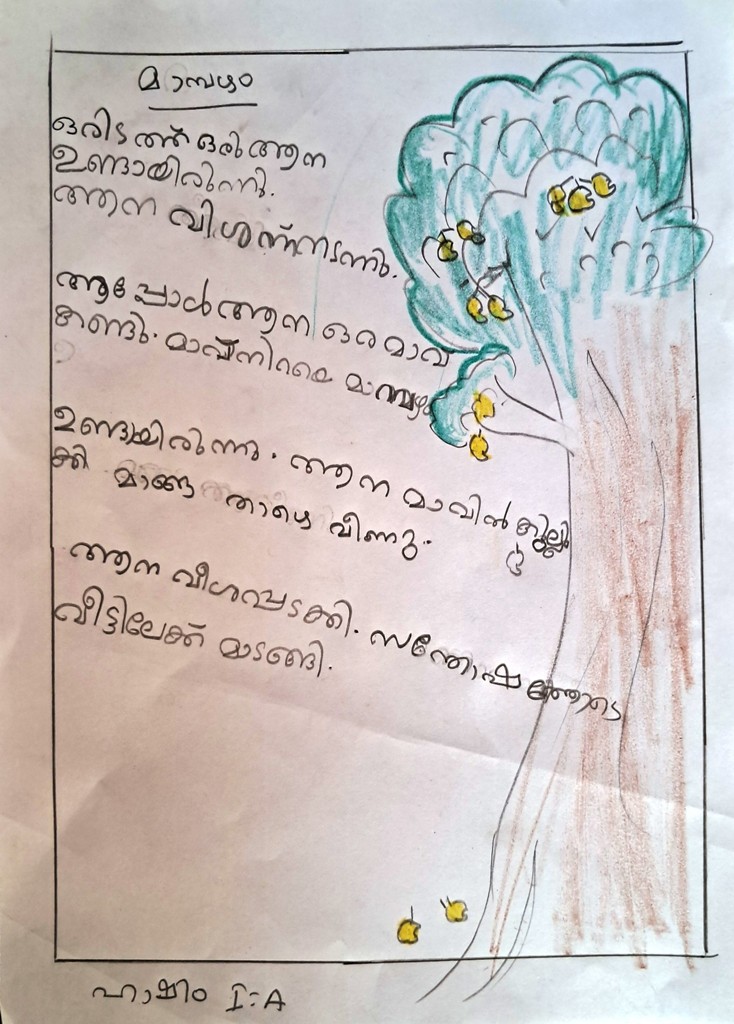 മാമ്പഴം
ഒരിടത്ത് ഒരു ആന
ഉണ്ടായിരുന്നു.
ആന വിശന്ന് നടന്നു.
ആപ്പോൾ ആന ഒരമാവ്
കണ്ടു. മാവ് നിറയെ മാമ്പഴം
ഉണ്ടായിരുന്നു. ആന മാവിൽ കുലു
ക്കി മാങ്ങ താഴെ വീണു.
ആന വിശപ്പടക്കി. സന്തോഷത്തോടെ
വീട്ടിലേക്ക് മടങ്ങി.
ഹാഷിം I:A